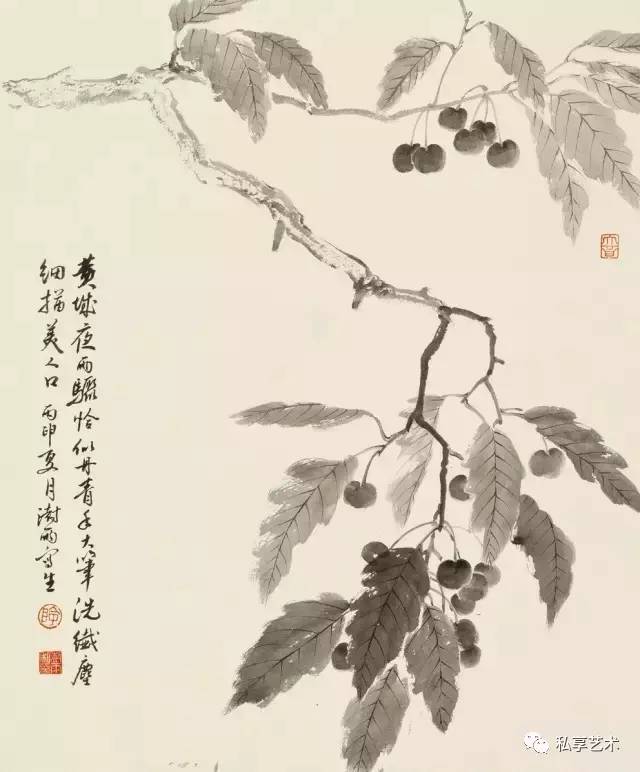 黄城夜雨驟恰似丹青手大筆洗纖塵
細描美人口 丙申夏月澍雨写生
私享艺术